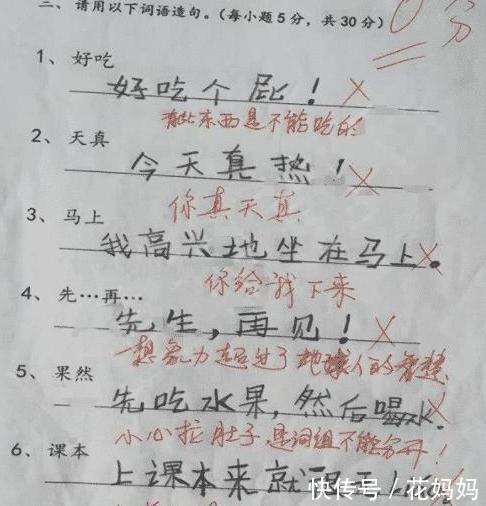 二、请用以下词语造句。(每小题5分，共30分)
0分
1、好吃
好吃个屁！
有些东西是不能吃的
2、天真
今天真热！
你真天真
3、马上
我高兴地坐在马上。
你给我下来
4、先…再…
先生，再见！
想象力超过了地球人的智慧
5、果然
先吃水果，然后喝水.
小心拉肚子 是词组不能分开！
6、课本
上课本来就
快传号／花妈妈